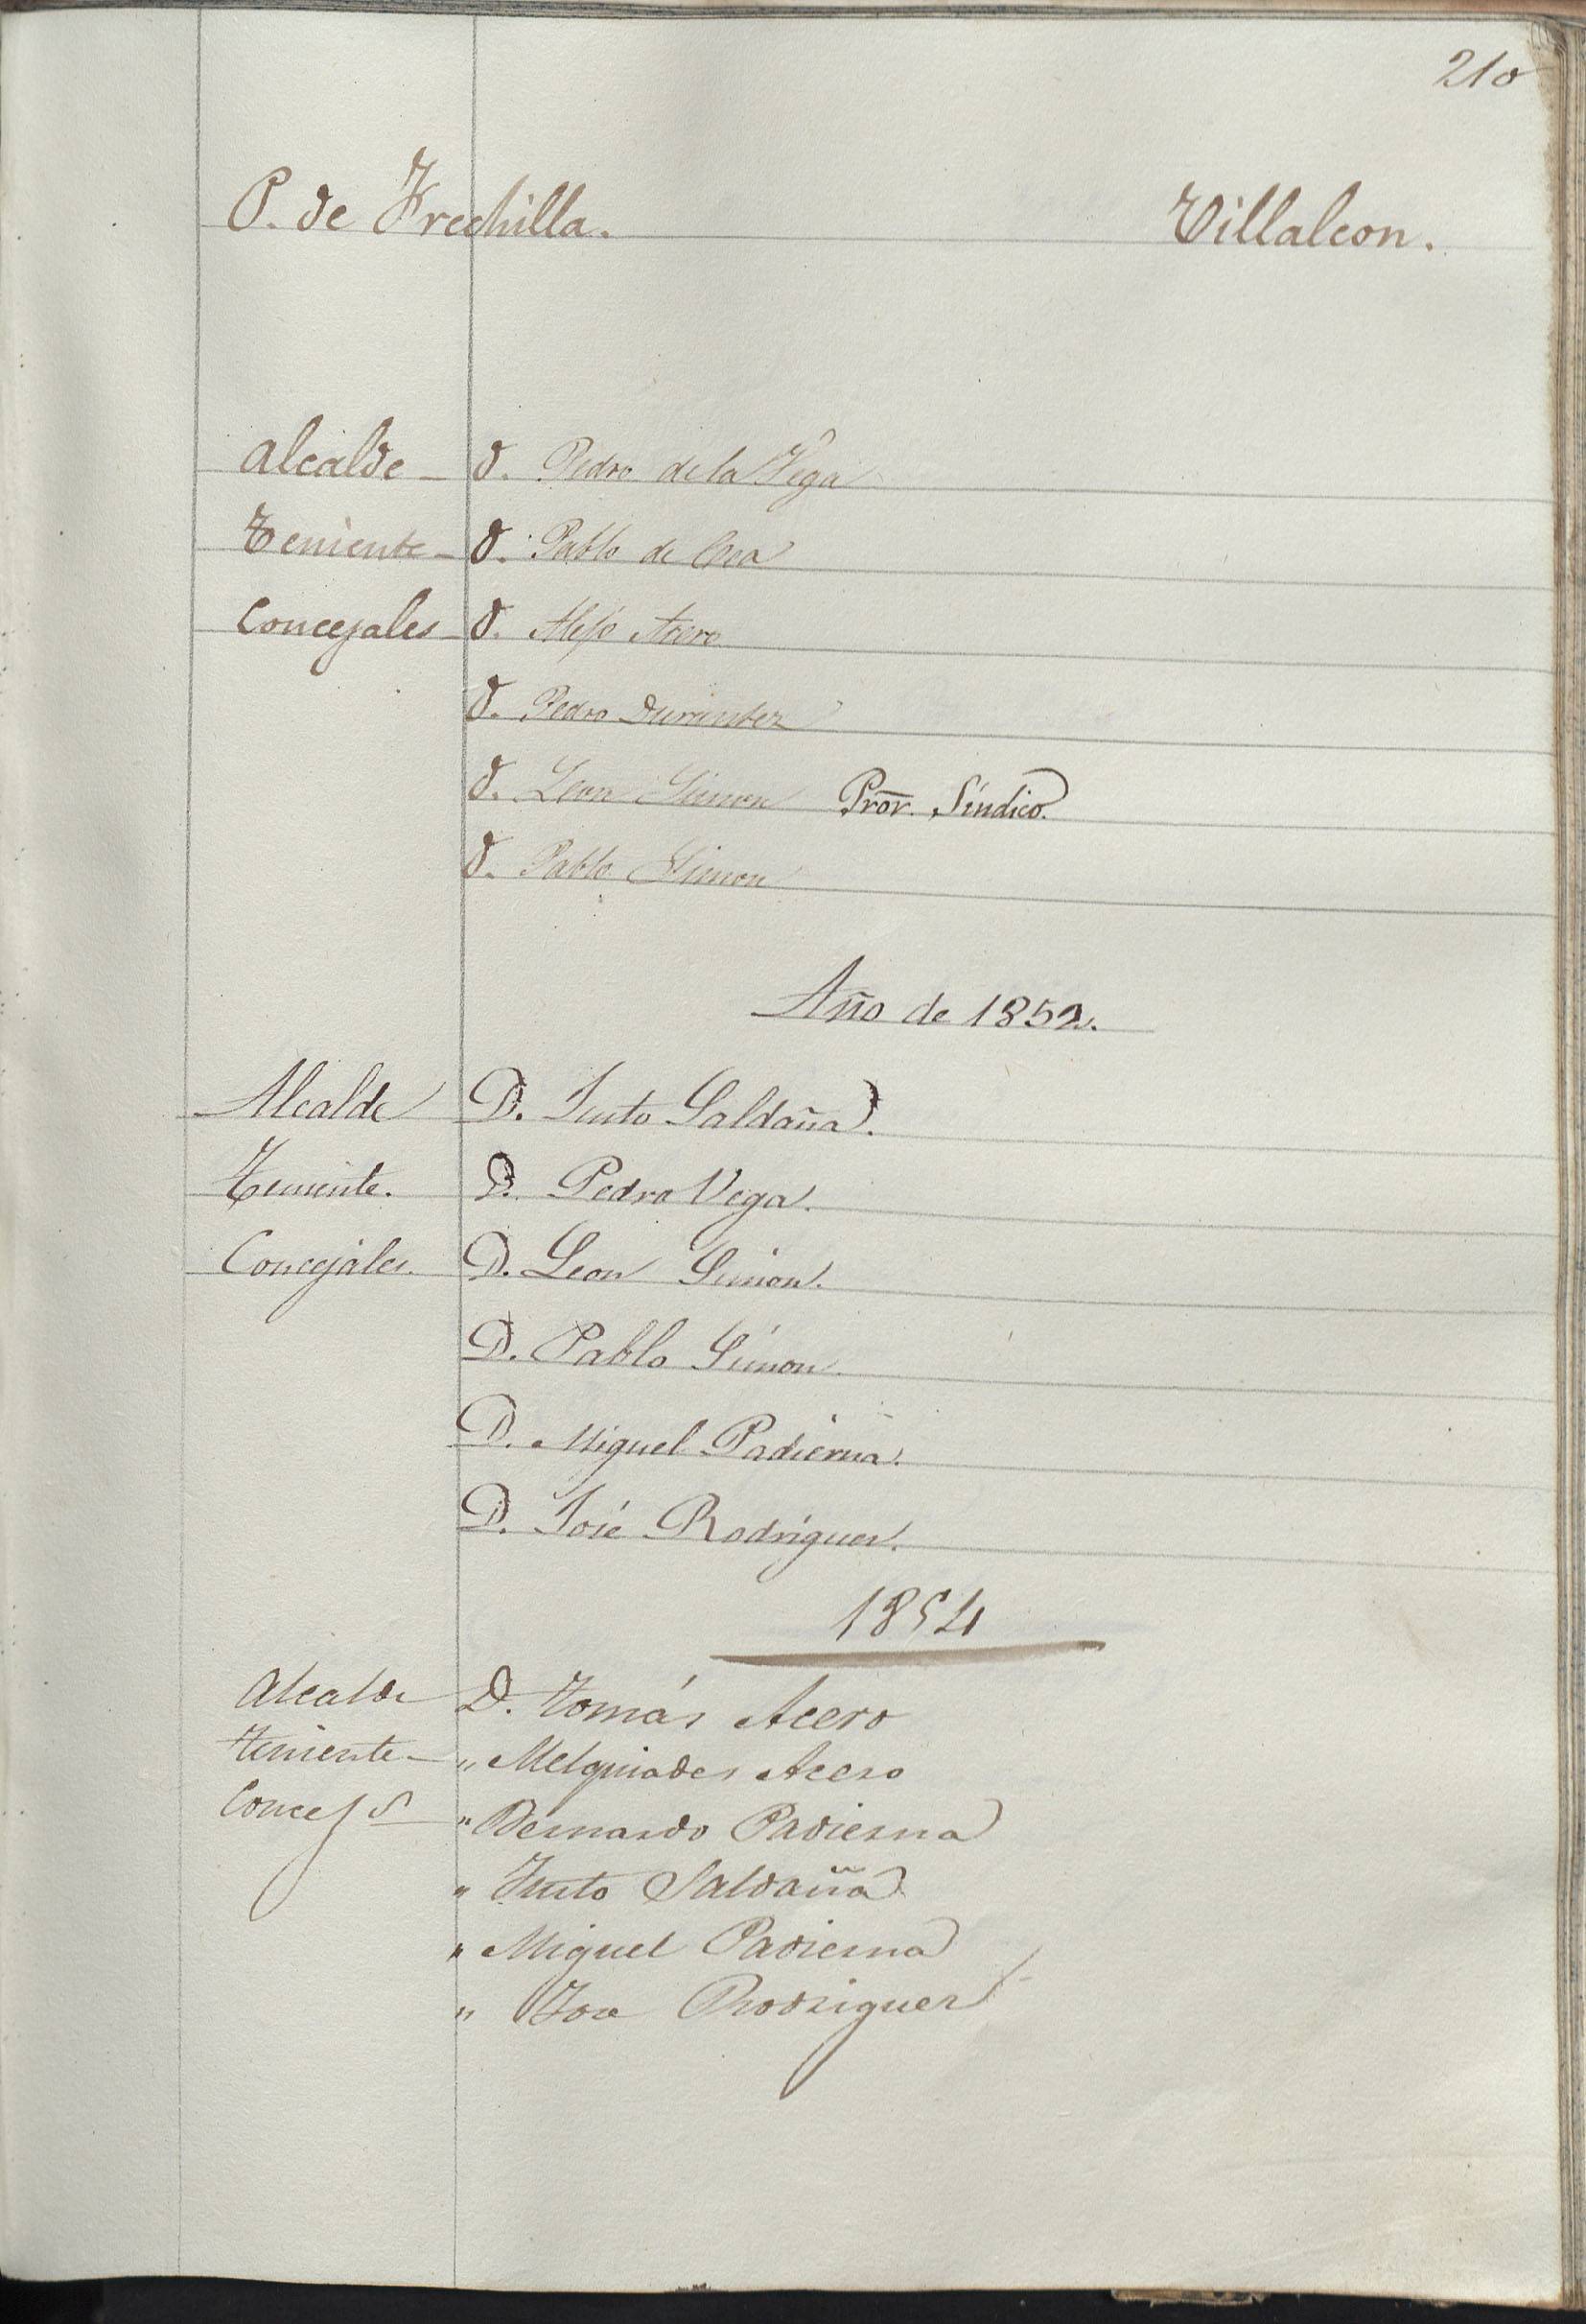 210
P. de Frechilla. Villalcon.
Alcalde - D. Pedro de la Vega
Teniente - D. Pablo de Oca
Concejales - D. Alejo Acero
D. Pedro Durantez
D. Leon Simon Pror. Síndico.
D. Pablo Simon
Año de 1852.
Alcalde D. Justo Saldaña.
Teniente. D. Pedro Vega.
Concejales. D. Leon Simon.
D. Pablo Simon.
D. Miguel Padierna.
D. José Rodriguez.
1854
Alcalde D. Tomás Acero
Teniente - " Melquiades Acero
Concejs " Bernardo Padierna
" Justo Saldaña
" Miguel Padierna
" Jose Rodriguez